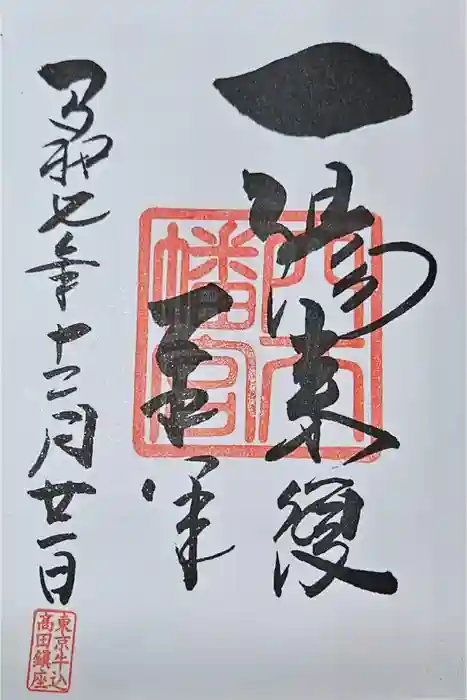 一陽来復
穴八
幡宮
令和七年十二月廿一日
東京牛込
高田鎮座